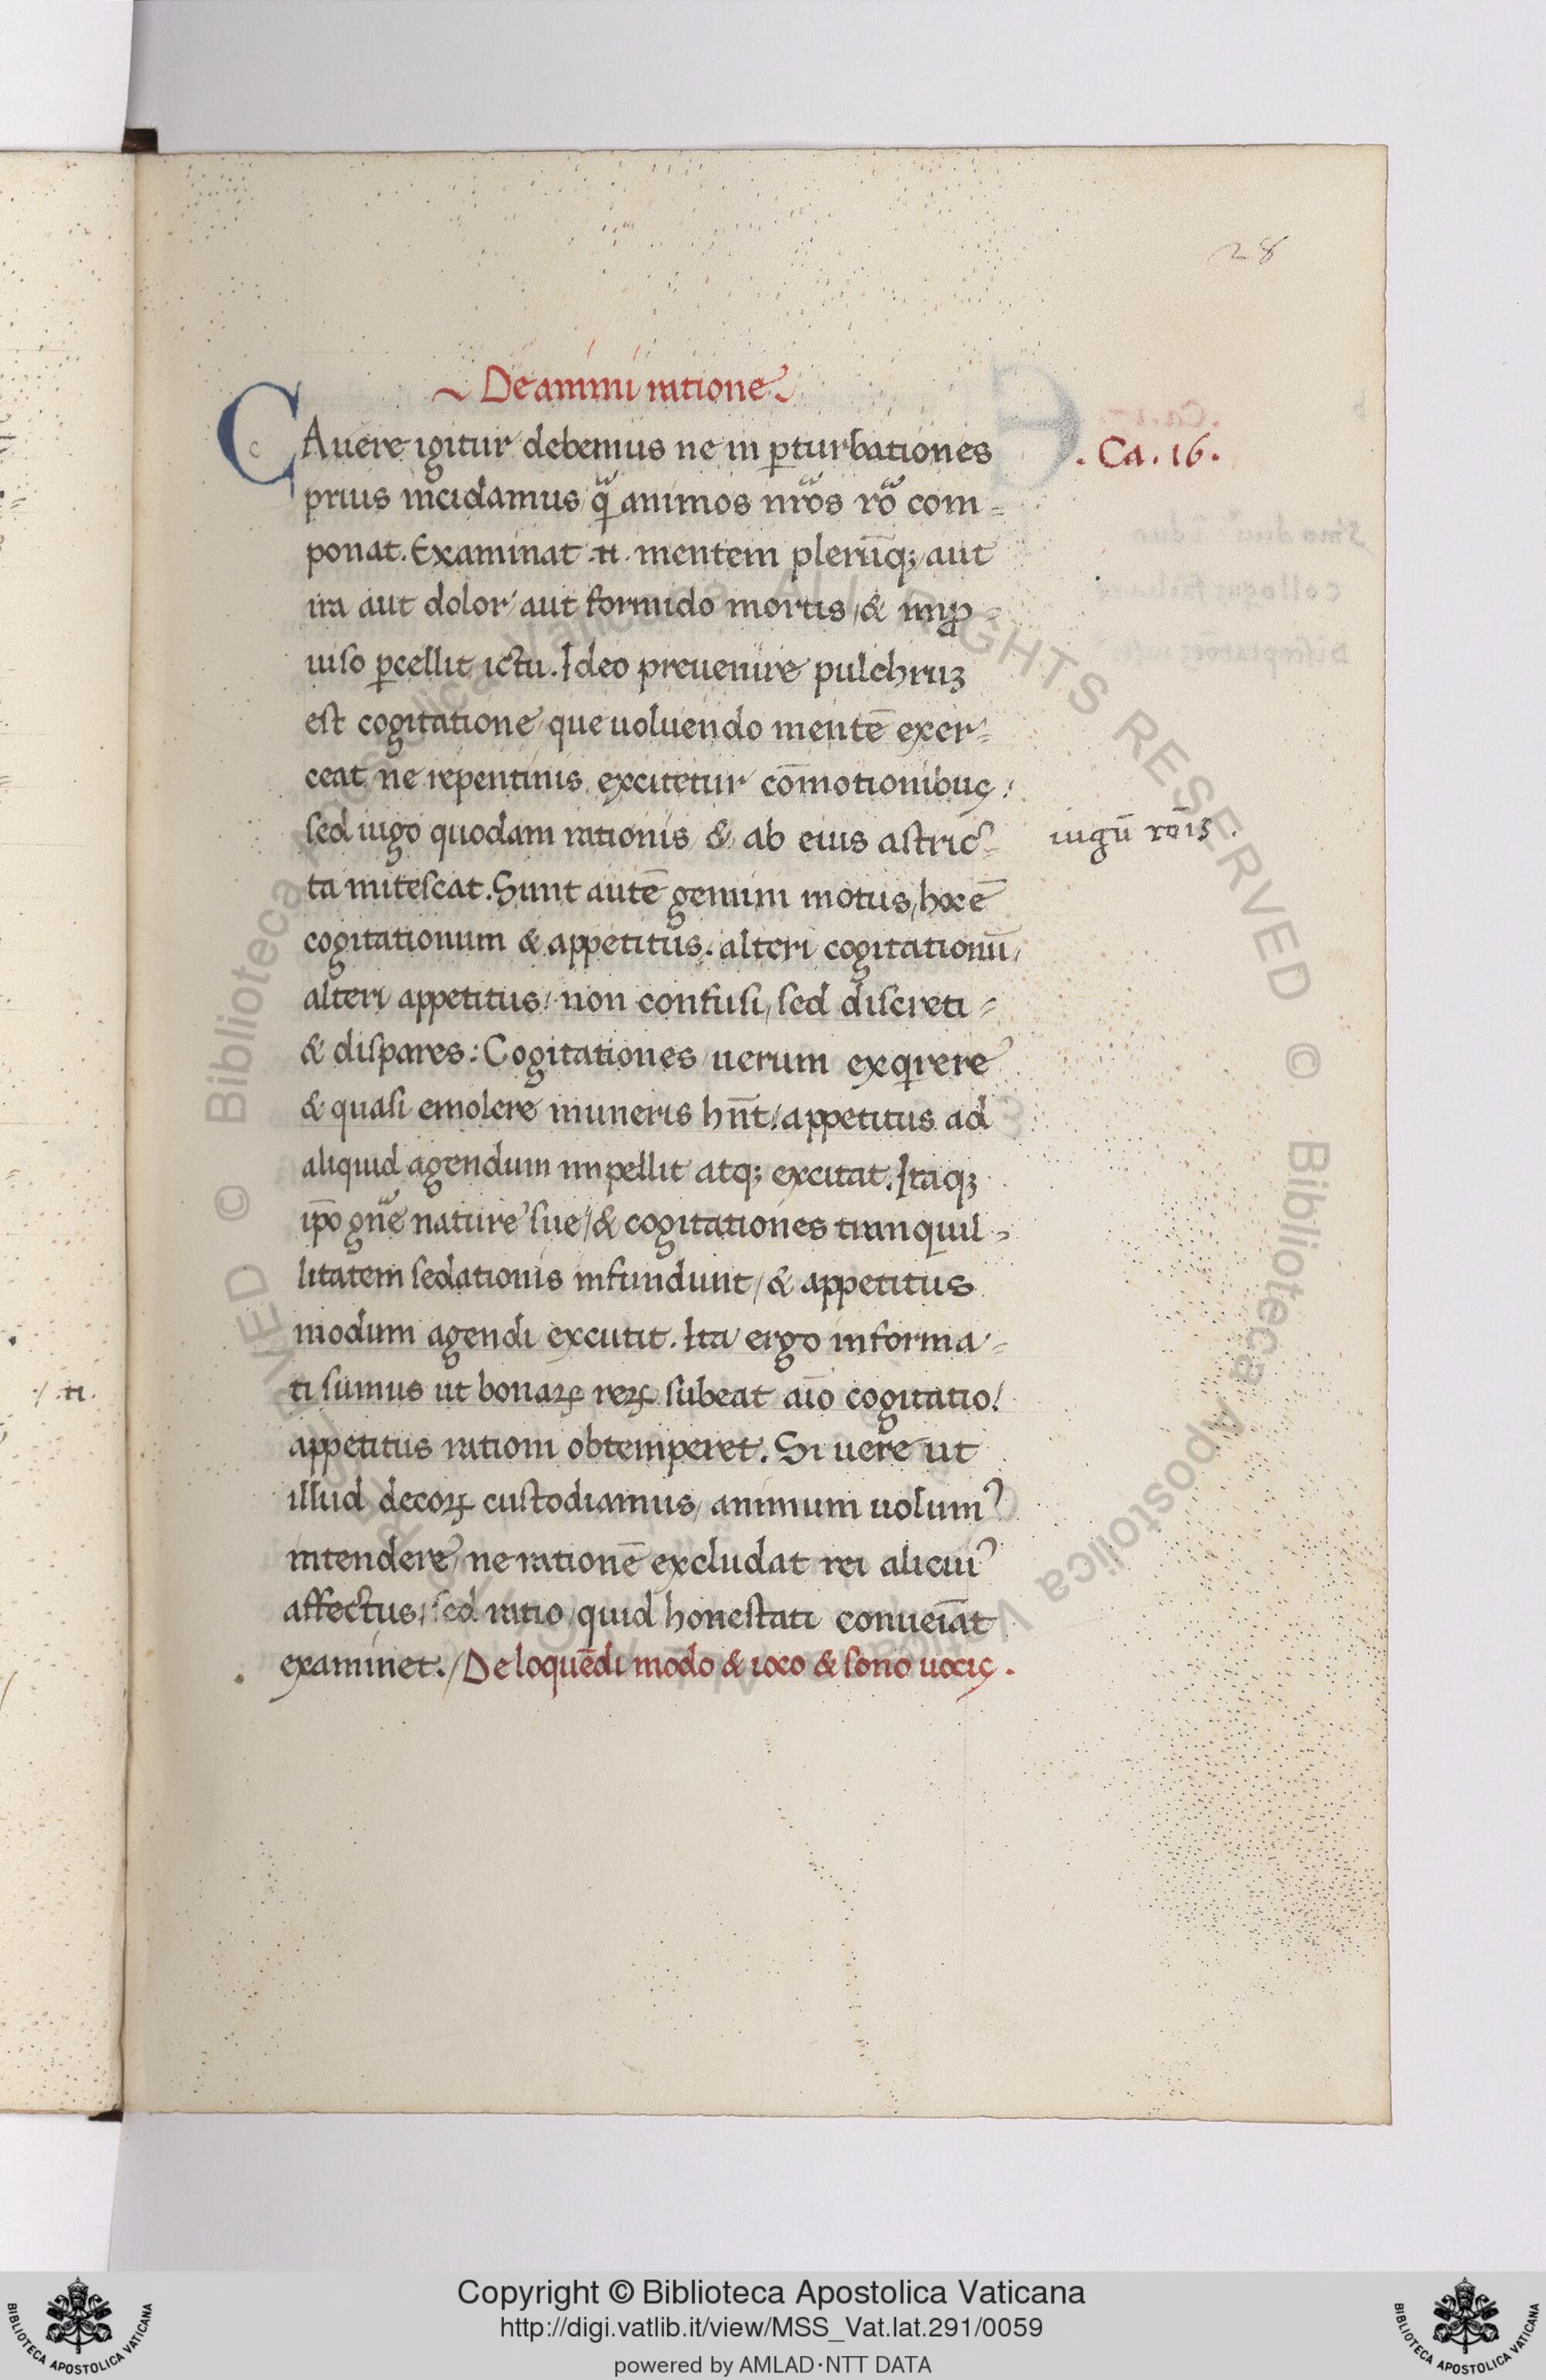 28
De animi ratione
. Ca . 16 .
CAuere igitur debemus ne in ꝑturbationes
prius incidamus q̃ animos nr̃os rõ com=
ponat. Examinat .n. mentem plerūq; aut
ira aut dolor aut formido mortis / & imꝓ=
uiso ꝑcellit ictu. Ideo preuenire pulchruꝫ
est cogitatione que uoluendo mentē exer=
ceat ne repentinis excitetur cōmotionibus /
sed iugo quodam rationis & ab eius astric=
iugū rōis .
ta mitescat. Sunt autē gemini motus / hoc ē
cogitationum & appetitus. alteri cogitationū /
alteri appetitus / non confusi / sed discreti =
& dispares : Cogitationes uerum exqirere
& quasi emolere muneris hn̄t / appetitus ad
aliquid agendum impellit atq; excitat. Itaqꝫ
ip̄o gn̄e nature sue / & cogitationes tranquil=
litatem sedationis infundunt / & appetitus
modum agendi excutit. Ita ergo informa=
ti sumus ut bonaꝝ reꝝ subeat aīo cogitatio /
appetitus rationi obtemperet. Si uere ut
illud decoꝝ custodiamus / animum uolumꝰ
intendere / ne rationē excludat rei alicuiꝰ
affectus / sed ratio / quid honestati conueīat
examinet. / De loquēdi modo & ioco & sono uocis .
./ .n.
Copyright © Biblioteca Apostolica Vaticana
http://digi.vatlib.it/view/MSS_Vat.lat.291/0059
powered by AMLAD·NTT DATA
BIBLIOTECA APOSTOLICA VATICANA
BIBLIOTECA APOSTOLICA VATICANA